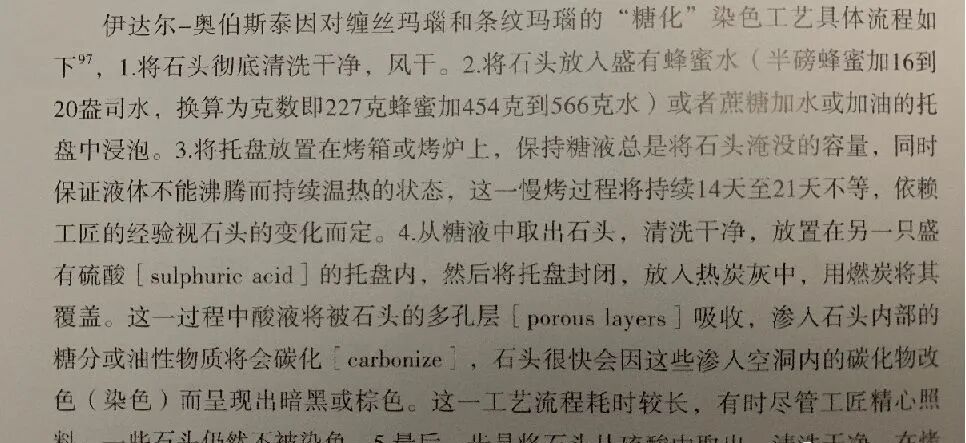 伊达尔-奥伯斯泰因对缠丝玛瑙和条纹玛瑙的“糖化”染色工艺具体流程如
下97，1.将石头彻底清洗干净，风干。2.将石头放入盛有蜂蜜水（半磅蜂蜜加16到
20盎司水，换算为克数即227克蜂蜜加454克到566克水）或者蔗糖加水或加油的托
盘中浸泡。3.将托盘放置在烤箱或烤炉上，保持糖液总是将石头淹没的容量，同时
保证液体不能沸腾而持续温热的状态，这一慢烤过程将持续14天至21天不等，依赖
工匠的经验视石头的变化而定。4.从糖液中取出石头，清洗干净，放置在另一只盛
有硫酸［sulphuric acid］的托盘内，然后将托盘封闭，放入热炭灰中，用燃炭将其
覆盖。这一过程中酸液将被石头的多孔层［porous layers］吸收，渗入石头内部的
糖分或油性物质将会碳化［carbonize］，石头很快会因这些渗入空洞内的碳化物改
色（染色）而呈现出暗黑或棕色。这一工艺流程耗时较长，有时尽管工匠精心照
料，一些石头仍然不被染色。5.最后一步是将石头从硫酸中取出，清洗干净，在烤